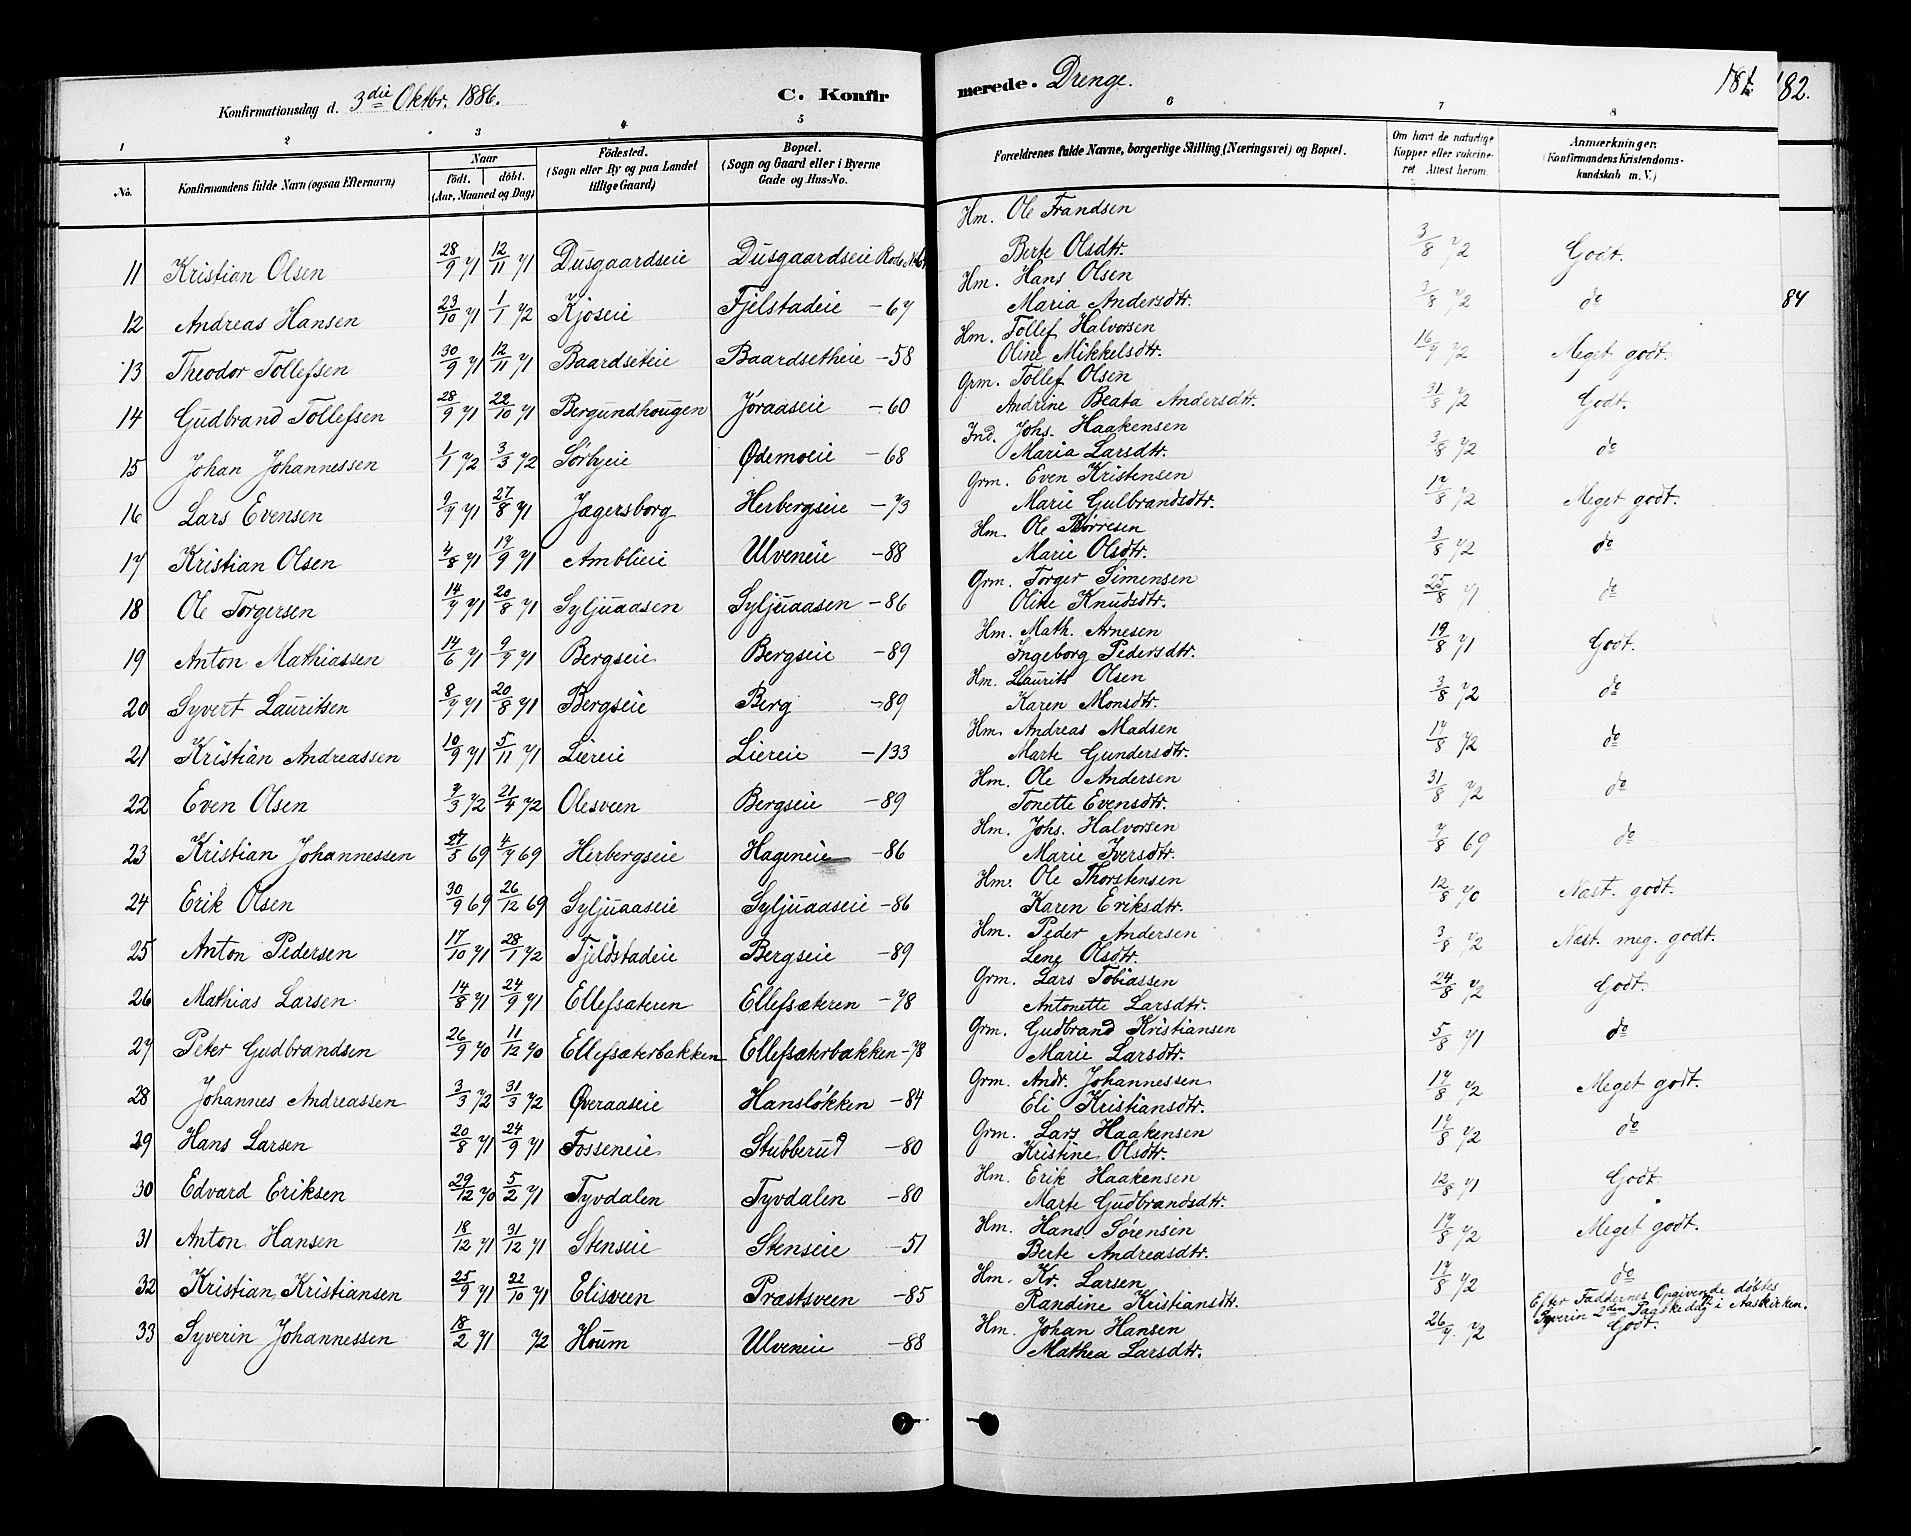 Konfirmationsdag d. 3die Oktbr. 1886.
C. Konfirmerede. Drenge.
181. 182.
1 2 3 4 5 6 7 8
No. Konfirmandens fulde Navn (ogsaa Efternavn) Naar født. døbt. (Aar, Maaned og Dag) Fødested. (Sogn eller By og paa Landet tillige Gaard) Bopæl. (Sogn og Gaard eller i Byerne Gade og Hus-No. Forældrenes fulde Navne, borgerlige Stilling (Næringsvei) og Bopæl. Om havt de naturlige Kopper eller vakcineret Attest herom. Anmærkninger. (Konfirmandens Kristendomskundskab m. V.)
11 Kristian Olsen 28/9 71 12/11 71 Dusgaardseie Dusgaardseie Hm. Ole Frandsen Berte Olsdtr. 3/8 72 Godt.
12 Andreas Hansen 23/10 71 1/1 72 Kjoseie Fjelstadeie -67 Hm. Hans Olsen Maria Andersdtr. 7/8 72 do
84
13 Theodor Tollefsen 30/9 71 12/11 71 Baardseteie Baardsetheie -58 Hm. Tollef Halvorsen Oline Mikkelsdtr. 16/7 72 Meget godt.
14 Gudbrand Tollefsen 28/9 71 22/10 71 Bergundhougen Joraaseie -60 Grm. Tollef Olsen Andrine Beata Andersdtr. 31/8 72 Godt.
15 Johan Johannessen 1/1 72 3/3 72 Sørbyeie Ødemoeie -68 Ind. Johs. Haakensen Maria Larsdtr. 3/8 72 do
16 Lars Evensen 9/7 71 27/8 71 Jægersborg Herbergseie -73 Grm. Even Kristensen Marie Gulbrandsdtr. 17/8 72 Meget godt.
17 Kristian Olsen 4/8 71 17/9 71 Amblieie Ulveneie -88 Hm. Ole Børresen Marie Olsdtr. 3/8 72 do
18 Ole Torgersen 14/7 71 20/8 71 Syljuaasen Syljuaasen -86 Grm. Torger Simensen Oline Knudsdtr. 25/8 71 do
19 Anton Mathiassen 14/6 71 9/7 71 Bergseie Bergseie -89 Hm. Math. Arnesen Ingeborg Pedersdtr. 19/8 71 Godt.
20 Syvert Lauritsen 8/7 71 20/8 71 Bergseie Berg -89 Hm. Laurits Olsen Karen Monsdtr. 3/8 72 do
21 Kristian Andreassen 10/9 71 5/11 71 Liereie Liereie -133 Hm. Andreas Madsen Marte Gundersdtr. 17/8 72 do
22 Even Olsen 7/3 72 21/4 72 Olesveen Bergseie -89 Hm. Ole Andersen Tonette Evensdtr. 31/8 72 do
23 Kristian Johannessen 27/5 69 4/7 69 Herbergseie Hageneie -86 Hm. Johs. Halvorsen Marie Iversdtr. 7/8 69 do
24 Erik Olsen 30/9 69 26/12 69 Syljuaaseie Syljuaaseie -86 Hm. Ole Thorstensen Karen Eriksdtr. 12/8 70 Næst. godt.
25 Anton Pedersen 17/10 71 28/1 72 Fjeldstadeie Bergseie -89 Hm. Peder Andersen Lene Olsdtr. 3/8 72 Næst. meg. godt.
26 Mathias Larsen 14/8 71 24/9 71 Ellefsæteren Ellefsæteren -78 Grm. Lars Tobiassen Antonette Larsdtr. 24/8 72 Godt.
27 Peter Gudbrandsen 26/9 70 11/12 70 Ellefsæterbakken Ellefsæterbakken -78 Grm. Gudbrand Kristiansen Marie Larsdtr. 5/8 71 do
28 Johannes Andreassen 3/3 72 31/3 72 Øveraaseie Hansløkken -84 Grm. Andr. Johannessen Eli Kristiansdtr. 17/8 72 Meget godt.
29 Hans Larsen 20/8 71 24/9 71 Fosseneie Stubberud -80 Grm. Lars Haakensen Kristine Olsdtr. 17/8 72 do
30 Edvard Eriksen 29/12 70 5/2 71 Tyvdalen Tyvdalen -80 Hm. Erik Haakensen Marte Gudbrandsdtr. 12/8 71 Godt.
31 Anton Hansen 18/12 71 31/12 71 Stenseie Stenseie -51 Hm. Hans Sørensen Berte Andreasdtr. 17/8 72 Meget godt.
32 Kristian Kristiansen 25/9 71 22/10 71 Elisveen Præstsveen -85 Hm. Kr. Larsen Randine Kristiansdtr. 17/8 72 do
Efter Faddernes Opgivende døbtes
Syverin 2den Paaskedag i Aaskirken.
33 Syverin Johannessen 18/2 71 72 Houm Ulveneie -88 Hm. Johan Hansen Mathea Larsdtr. 26/7 72 Godt.